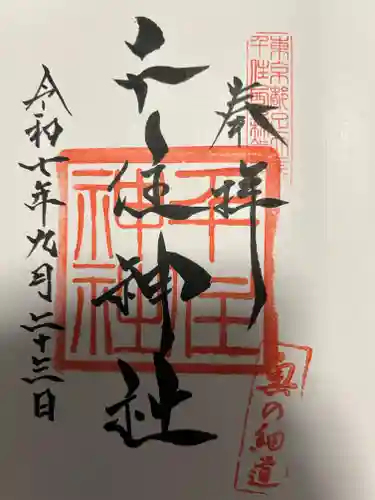 奉拝
千住神社
令和七年九月二十三日
千住神社
奥の細道
東京都足立区
千住